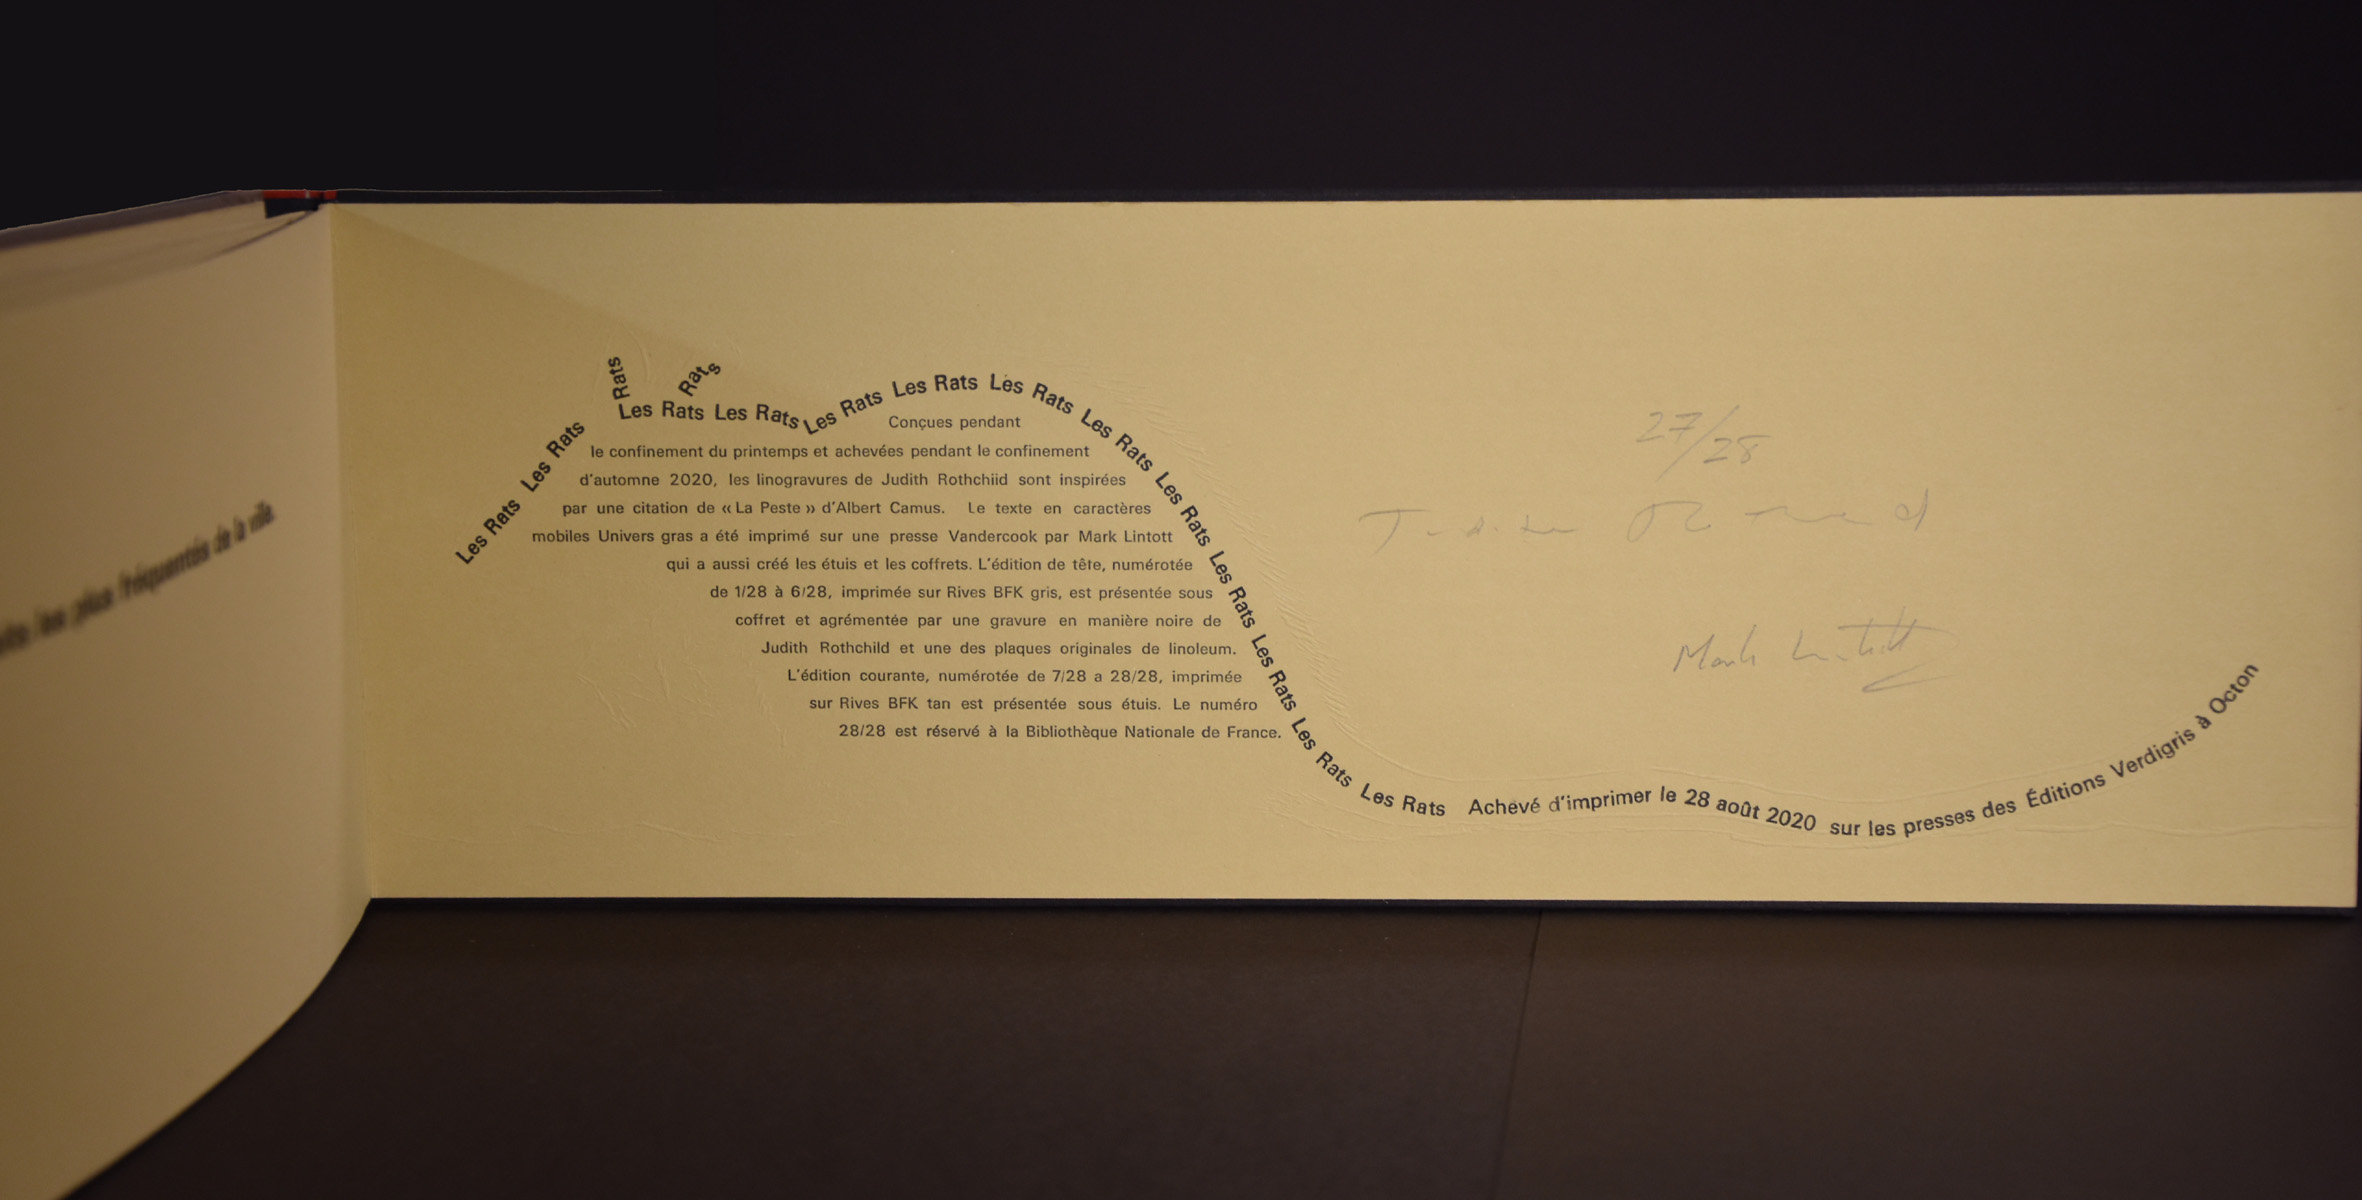 plus fréquentés de la ville.
Les Rats Les Rats
Rats
Rats
Les Rats Les Rats Les Rats Les Rats Les Rats Les Rats Les Rats Les Rats Les Rats Les Rats Les Rats Achevé d'imprimer le 28 août 2020 sur les presses des Éditions Verdigris à Octon
Conçues pendant
le confinement du printemps et achevées pendant le confinement
d'automne 2020, les linogravures de Judith Rothchiid sont inspirées
par une citation de « La Peste » d'Albert Camus. Le texte en caractères
mobiles Univers gras a été imprimé sur une presse Vandercook par Mark Lintott
qui a aussi créé les étuis et les coffrets. L'édition de tête, numérotée
de 1/28 à 6/28, imprimée sur Rives BFK gris, est présentée sous
coffret et agrémentée par une gravure en manière noire de
Judith Rothchild et une des plaques originales de linoleum.
L'édition courante, numérotée de 7/28 a 28/28, imprimée
sur Rives BFK tan est présentée sous étuis. Le numéro
28/28 est réservé à la Bibliothèque Nationale de France.
27/28
Mark Lintott